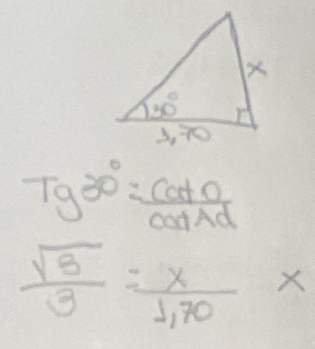 x
30°
1,70
Tg30° = Cat O / cat Ad
√3 / 3 = x / 1,70 x